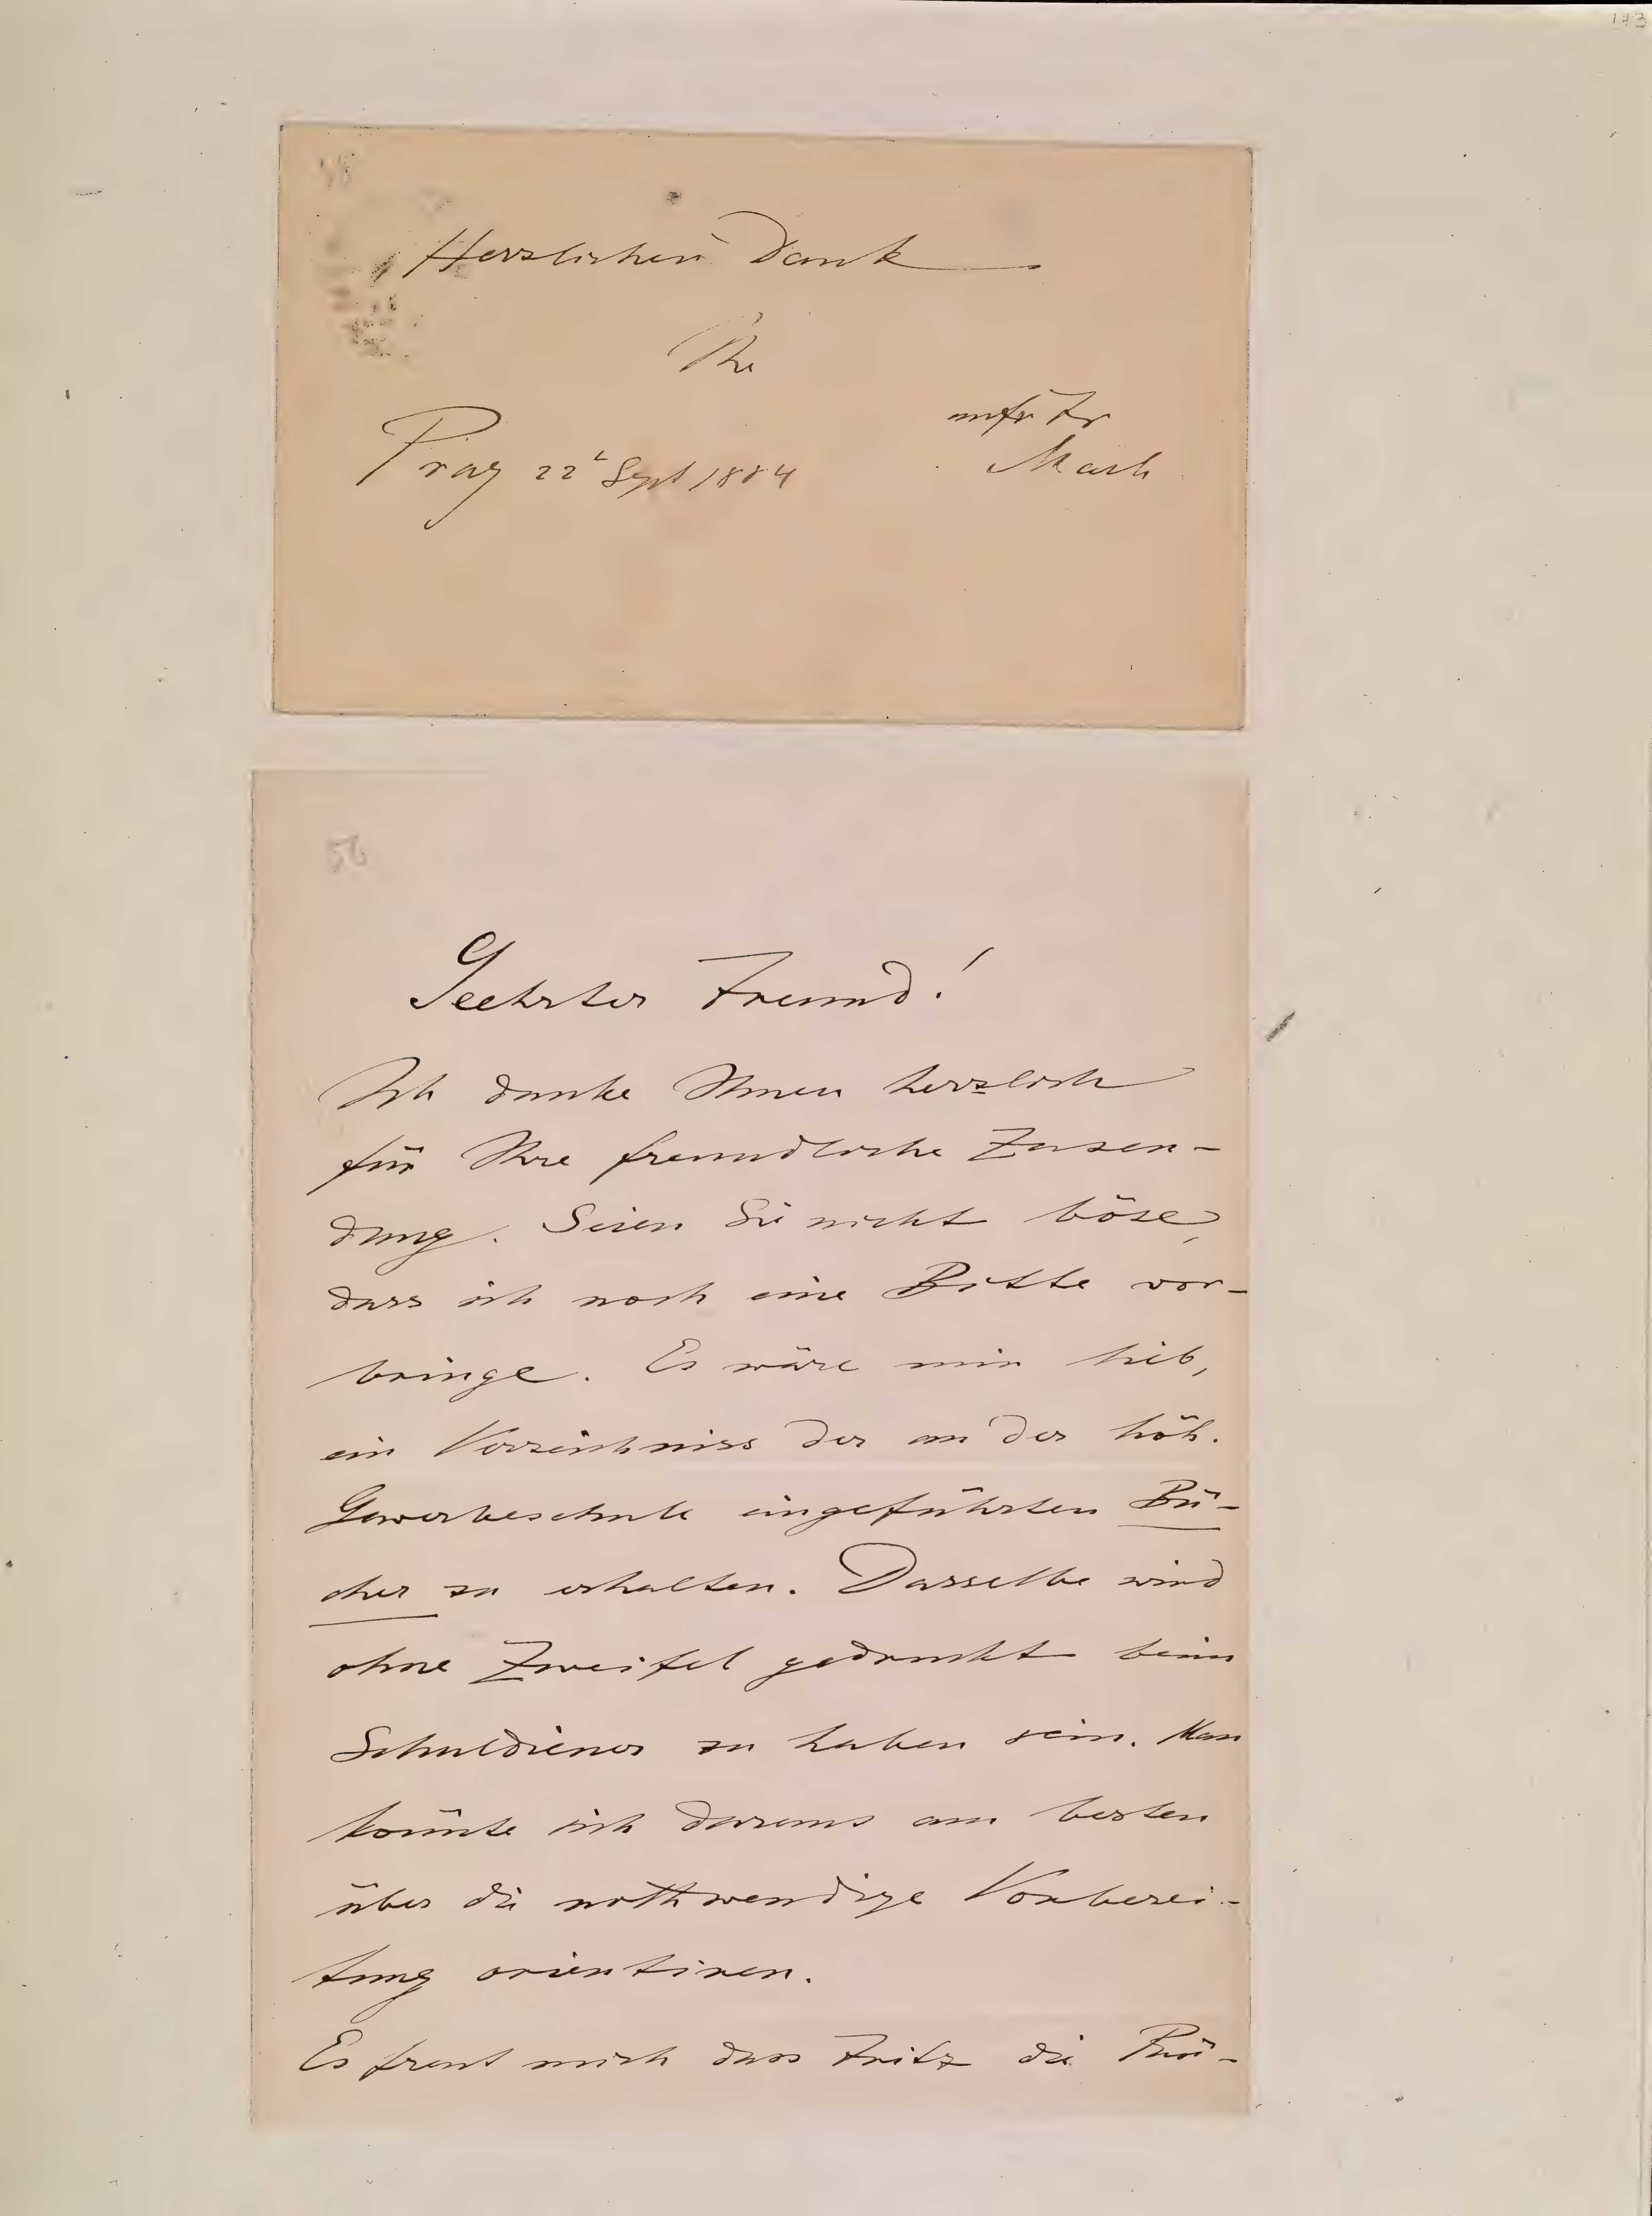 173
Herzlichen Dank
Ihr
aufr Fr
Prag 22t Sept 1884
Mach
56
Geehrter Freund!
Ich danke Ihnen herzlich
für Ihre freundliche Zusen-
dung. Seien Sie nicht böse,
dass ich noch eine Bitte vor-
bringe. Es wäre mir lieb,
ein Verzeichniss der an der höh.
Gewerbeschule eingeführten Bü-
cher zu erhalten. Dasselbe wird
ohne Zweifel gedruckt beim
Schuldiener zu haben sein. Man
könnte sich daraus am besten
über die nothwendige Vorberei-
tung orientiren.
Es freut mich dass Fritz die